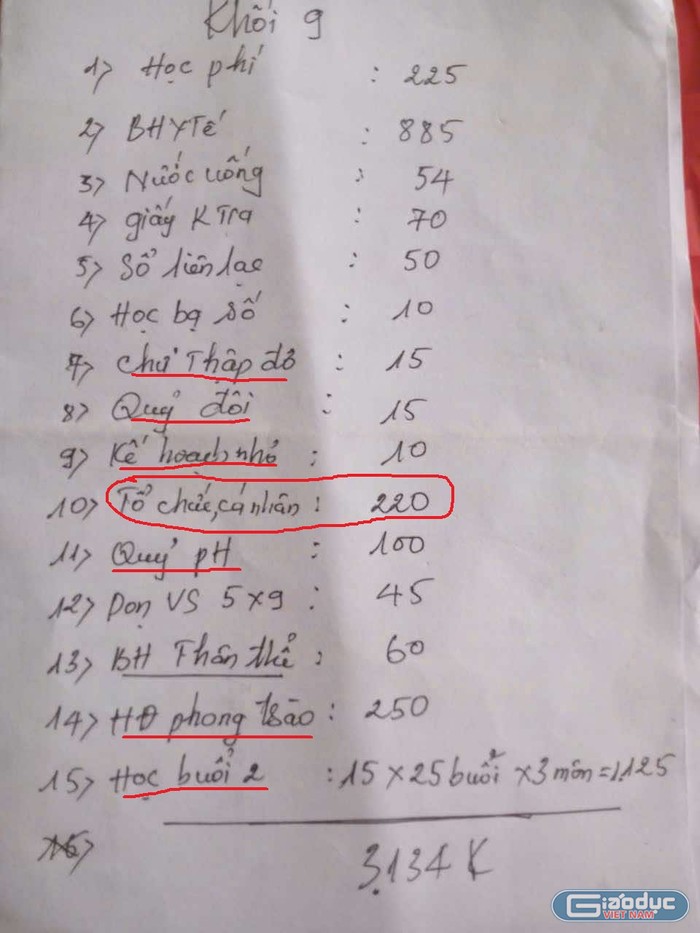 Khối 9
1) Học phí : 225
2) BHYTế : 885
3) Nước uống : 54
4) giấy K Tra : 70
5) Sổ liên lạc : 50
6) Học bạ số : 10
7) Chữ Thập đỏ : 15
8) Quỹ đội : 15
9) Kế hoạch nhỏ : 10
10) Tổ chức, cá nhân : 220
11) Quỹ pH : 100
12) Dọn VS 5 x 9 : 45
13) BH Thân thể : 60
14) HĐ phong trào : 250
15) Học buổi 2 : 15 x 25 buổi x 3 môn = 1.125
16)
3.134 K
Giáo dục
VIỆT NAM